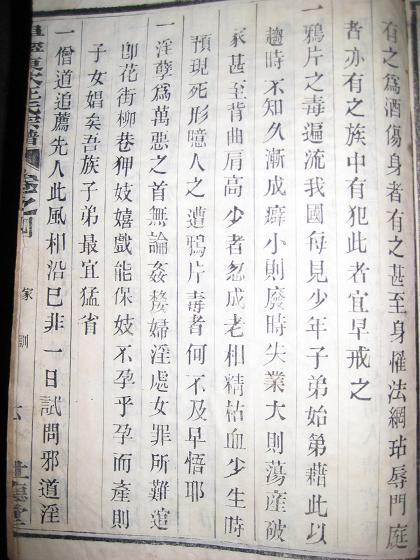 有之爲酒傷身者有之甚至身罹法網玷辱門庭
者亦有之族中有犯此者宜早戒之
一鴉片之毒遍流我國每見少年子弟始第藉此以
趨時不知久漸成癖小則廢時失業大則蕩產破
家甚至背曲肩高少者忽成老相精枯血少生時
預現死形噫人之遭鴉片毒者何不及早悟耶
一淫孽爲萬惡之首無論姦嫠婦淫處女罪所難逭
卽花街柳巷狎妓嬉戲能保妓不孕乎孕而產則
子女娼矣吾族子弟最宜猛省
一僧道追薦先人此風相沿已非一日試問邪道淫
氏宗譜 卷之四 家訓 六